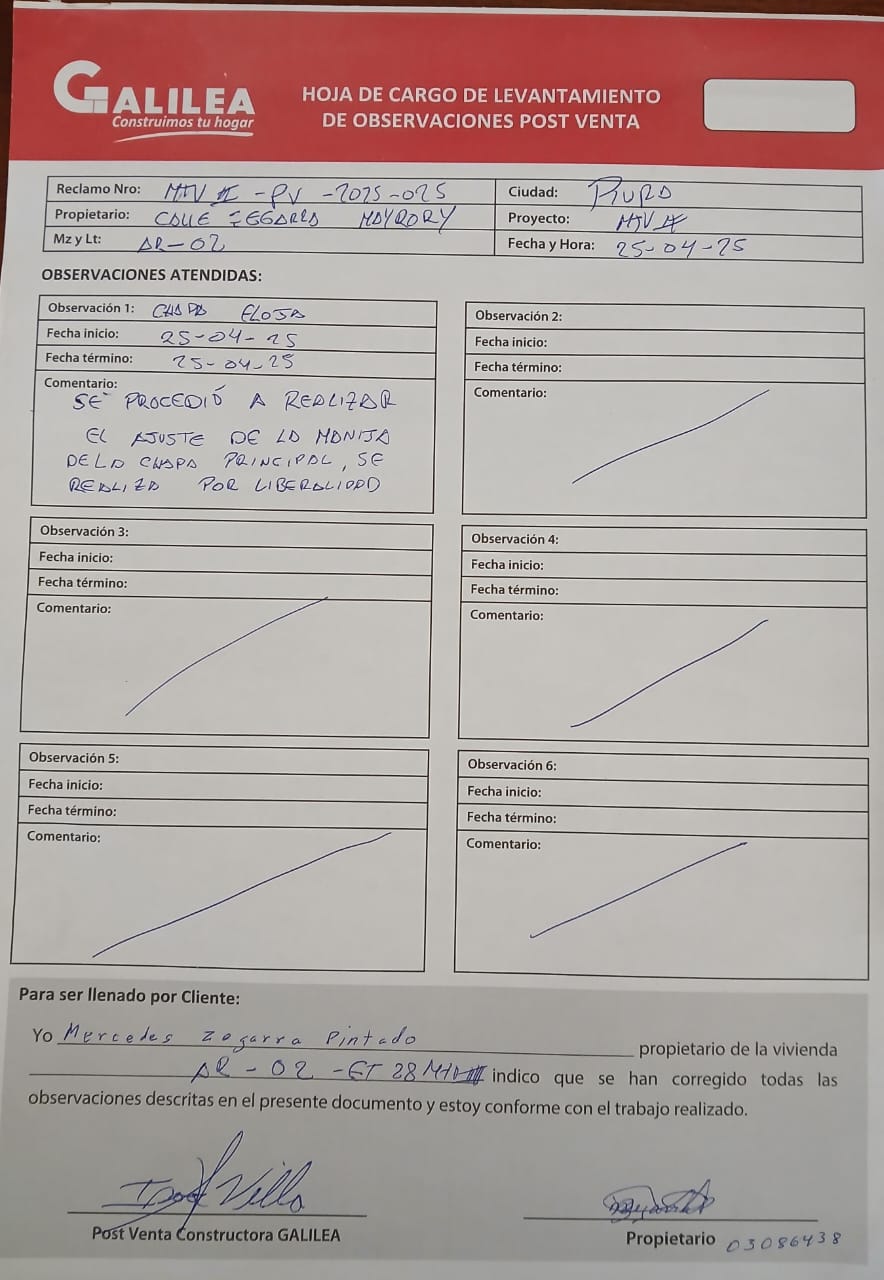 GALILEA
Construimos tu hogar
HOJA DE CARGO DE LEVANTAMIENTO
DE OBSERVACIONES POST VENTA
Reclamo Nro: MTV II -PV -2025-025
Ciudad: PIURA
Propietario: CALLE ZEGARRA MAYRORY
Proyecto: MTV II
Mz y Lt: AR-02
Fecha y Hora: 25-04-25
OBSERVACIONES ATENDIDAS:
Observación 1: CHAPA FLOJA
Fecha inicio: 25-04-25
Fecha término: 25-04-25
Comentario:
SE PROCEDIÓ A REALIZAR
EL AJUSTE DE LA MANIJA
DE LA CHAPA PRINCIPAL, SE
REALIZA POR LIBERALIDAD
Observación 2:
Fecha inicio:
Fecha término:
Comentario:
Observación 3:
Fecha inicio:
Fecha término:
Comentario:
Observación 4:
Fecha inicio:
Fecha término:
Comentario:
Observación 5:
Fecha inicio:
Fecha término:
Comentario:
Observación 6:
Fecha inicio:
Fecha término:
Comentario:
Para ser llenado por Cliente:
Yo Mercedes Zegarra Pintado propietario de la vivienda
AR-02 -ET 28 indico que se han corregido todas las
observaciones descritas en el presente documento y estoy conforme con el trabajo realizado.
Post Venta Constructora GALILEA
Propietario 03086438